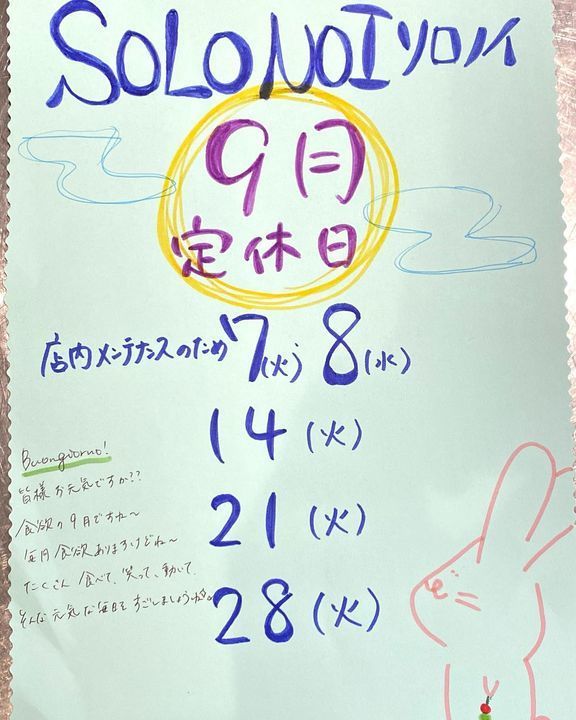 SOLO NOI ソロノイ
9月
定休日
店内メンテナンスのため 7(火) 8(水)
14(火)
21(火)
28(火)
Buongiorno!
皆様お元気ですか??
食欲の9月ですね〜
毎月食欲ありますけどね〜
たくさん食べて、笑って、動いて、
そんな元気な毎日をすごしましょうね。